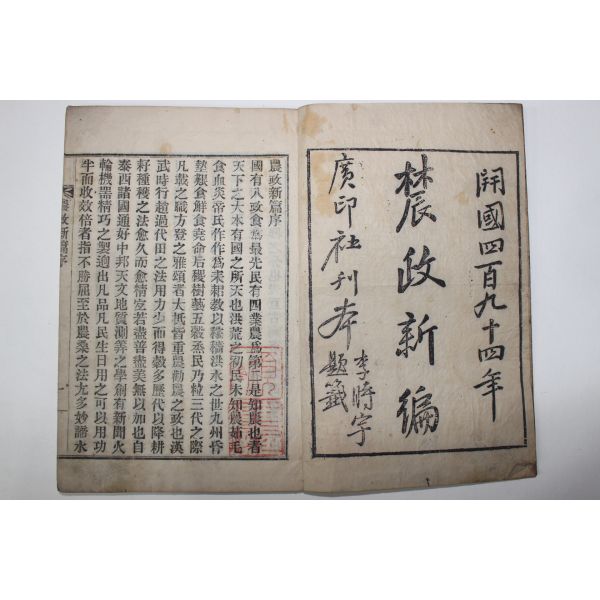 開國四百九十四年
農政新編
廣印社刊本
李時宇
題籤
農政新篇序
國有八政食爲最先民有四業農爲第一是知農也者
天下之大本有國之所天也洪荒之初民未知農茹毛
食血炎帝氏作作爲耒耜教以稼穡洪水之世九州昏
墊艱食鮮食堯命后稷樹藝五穀烝民乃粒三代之際
凡載之職方登之雅頌者大抵皆重農勸農之政也漢
武時行趙過代田之法用力少而得穀多降以降耕
耔種稑之法愈久而愈精宜若盡善盡美無以加也自
泰西諸國通好中邦天文地質測算之學創有新聞火
輪機器精巧之製迥出凡品凡民生日用之可以用功
半而收效倍者指不勝屈至於農桑之法尤多妙諦水
農政新篇序